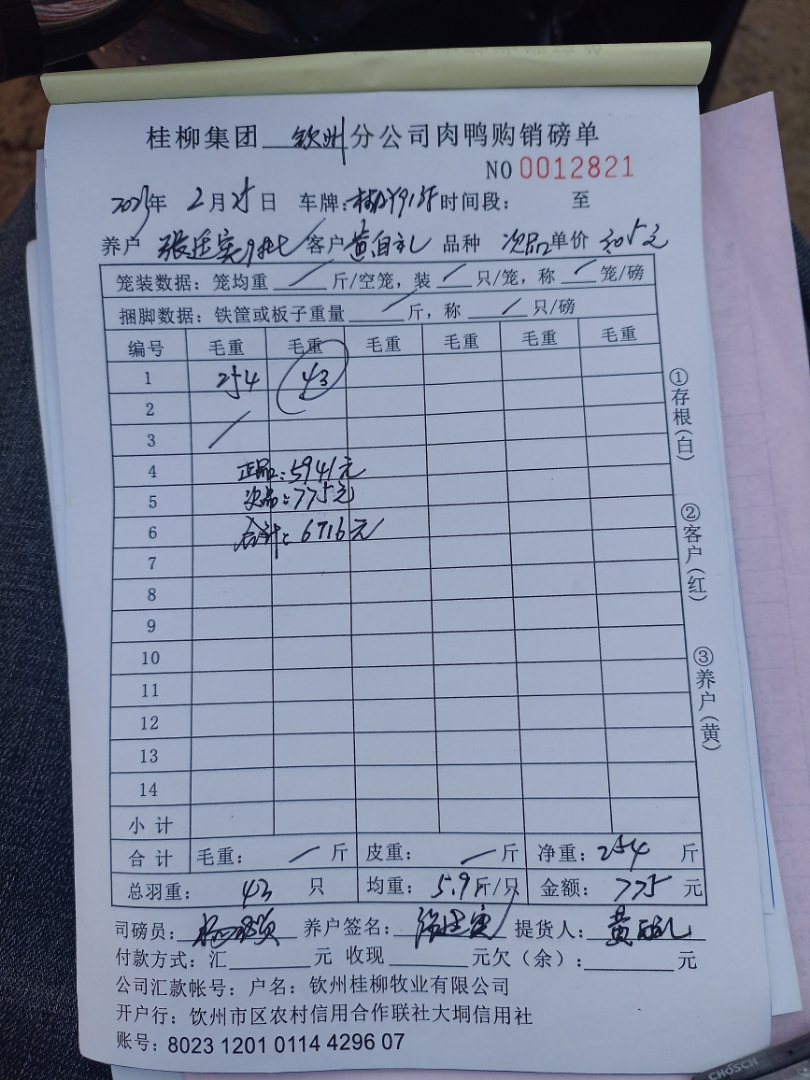 桂柳集团 钦州 分公司肉鸭购销磅单
NO 0012821
2023年 2月25日 车牌: 时间段: 至
养户 张廷寅 客户 黄自礼 品种 次品 单价 3.05元
笼装数据: 笼均重 / 斤/空笼, 装 / 只/笼, 称 / 笼/磅
捆脚数据: 铁筐或板子重量 / 斤, 称 / 只/磅
编号 毛重 毛重 毛重 毛重 毛重 毛重
1 254 43
2
3 /
4 正品: 5941元
5 次品: 775元
6 合计: 6716元
7
8
9
10
11
12
13
14
小计
合计 毛重: / 斤 皮重: / 斤 净重: 254 斤
总羽重: 43 只 均重: 5.9斤/只 金额: 775 元
司磅员: 养户签名: 张廷寅 提货人: 黄自礼
付款方式: 汇 元 收现 元 欠(余): 元
公司汇款帐号: 户名: 钦州桂柳牧业有限公司
开户行: 钦州市区农村信用合作联社大垌信用社
账号: 8023 1201 0114 4296 07
①存根(白)
②客户(红)
③养户(黄)
CHOSCH